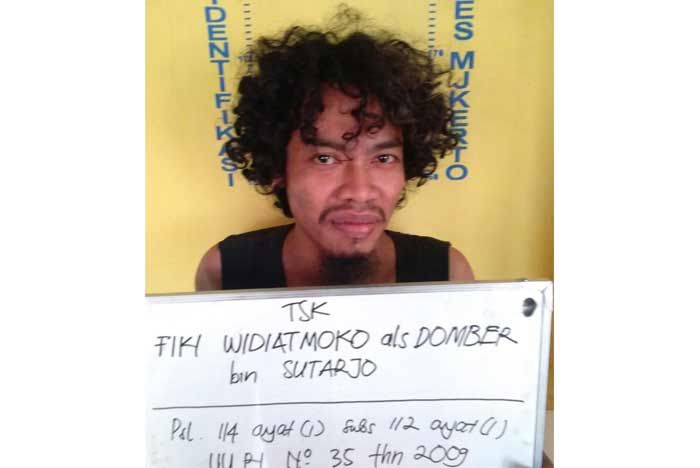 IDENTIFIKASI
ES MJKERTO
TSK
FIKI WIDIATMOKO als DOMBER
bin SUTARJO
Psl. 114 ayat (1) subs 112 ayat (1)
UU RI No 35 thn 2009